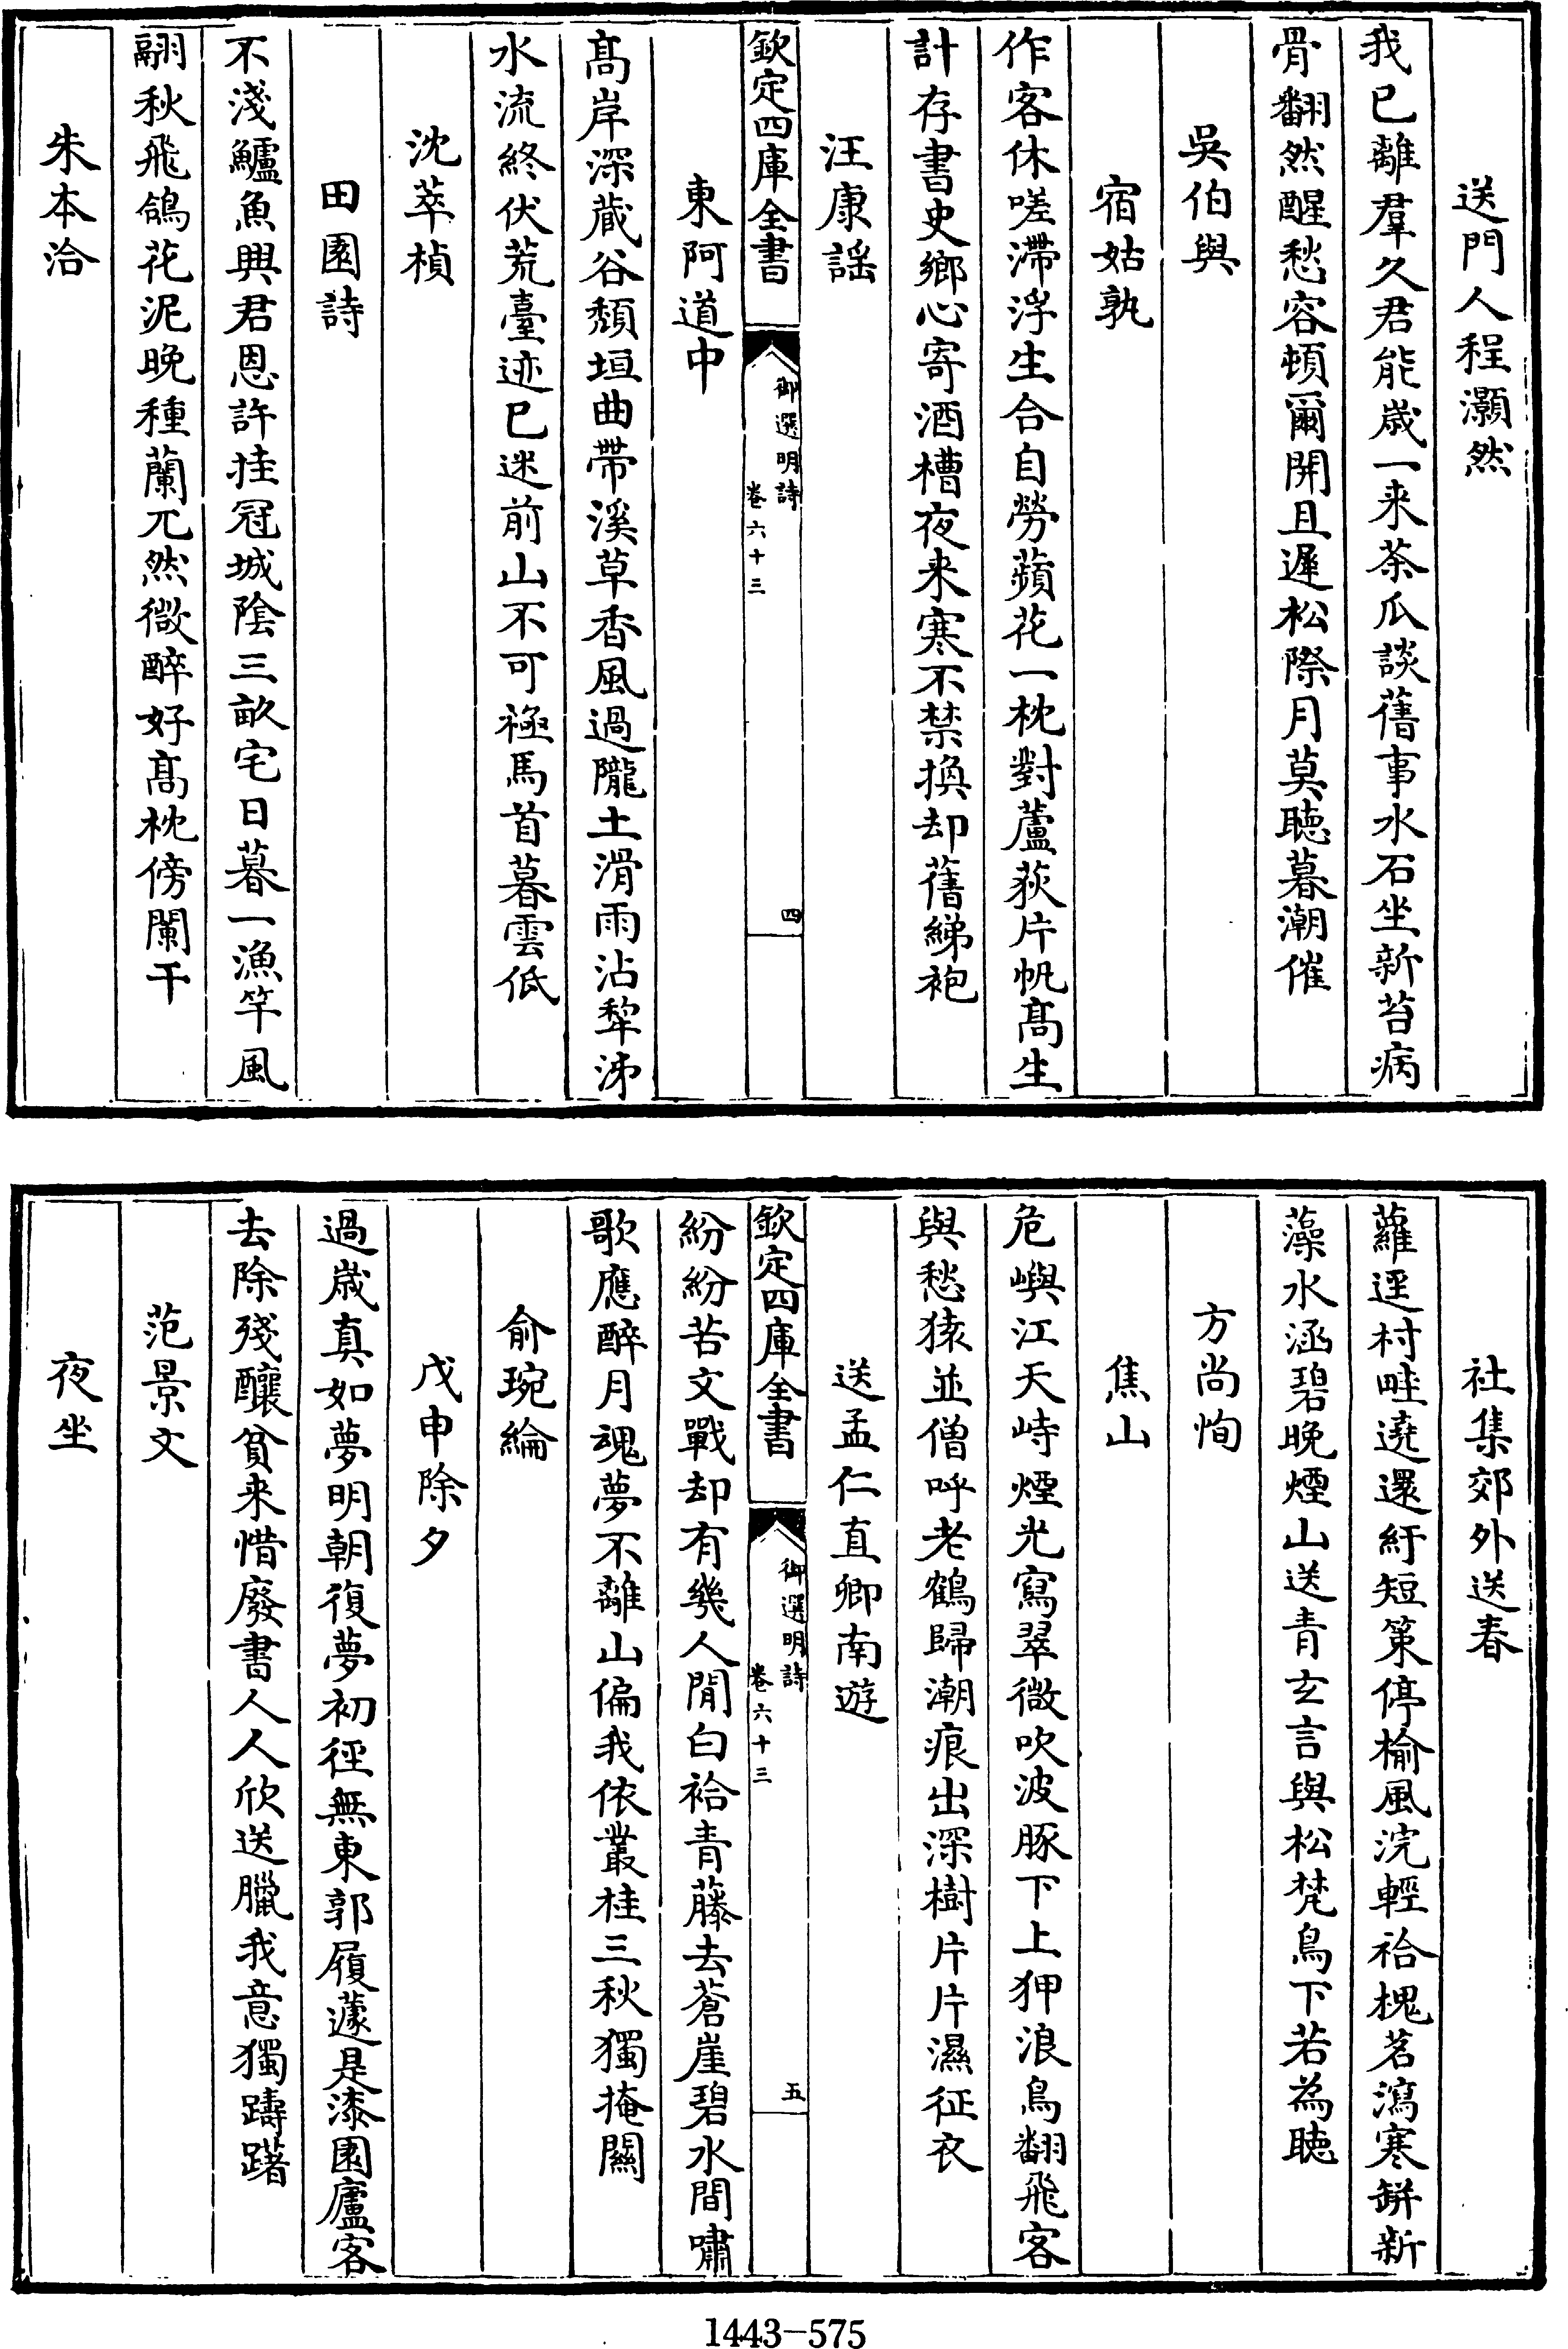 送門人程灝然
我已離羣久君能歲一来茶瓜談舊事水石坐新苔病
骨翻然醒愁容頓爾開且遲松際月莫聴暮潮催
吳伯與
宿姑孰
作客休嗟滯浮生合自勞蘋花一枕對蘆荻片帆髙生
計存書史鄉心寄酒槽夜来寒不禁換却舊綈袍
汪康謡
欽定四庫全書
御選明詩
卷六十三
四
東阿道中
髙岸深蔵谷頽垣曲帶溪草香風過隴土滑雨沾犂沛
水流終伏荒臺迹已迷前山不可極馬首暮雲低
沈萃楨
田園詩
不淺鱸魚興君恩許挂冠城陰三畝宅日暮一漁竿風
翮秋飛鴿花泥晚種蘭兀然微醉好髙枕傍闌干
朱本洽
社集郊外送春
蘿逕村畦遶還紆短策停榆風浣輕袷槐茗瀉寒缾新
藻水涵碧晚煙山送青玄言與松梵鳥下若為聴
方尚恂
焦山
危嶼江天峙煙光寫翠微吹波豚下上狎浪鳥翻飛客
與愁猿並僧呼老鶴歸潮痕出深樹片片濕征衣
送孟仁直卿南遊
欽定四庫全書
御選明詩
卷六十三
五
紛紛苦文戰却有幾人閒白袷青藤去蒼崖碧水間嘯
歌應醉月魂夢不離山偏我依叢桂三秋獨掩關
俞琬綸
戊申除夕
過歲真如夢明朝復夢初徑無東郭履蘧是漆園廬客
去除殘釀貧来惜廢書人人欣送臘我意獨躊躇
范景文
夜坐
1443-575